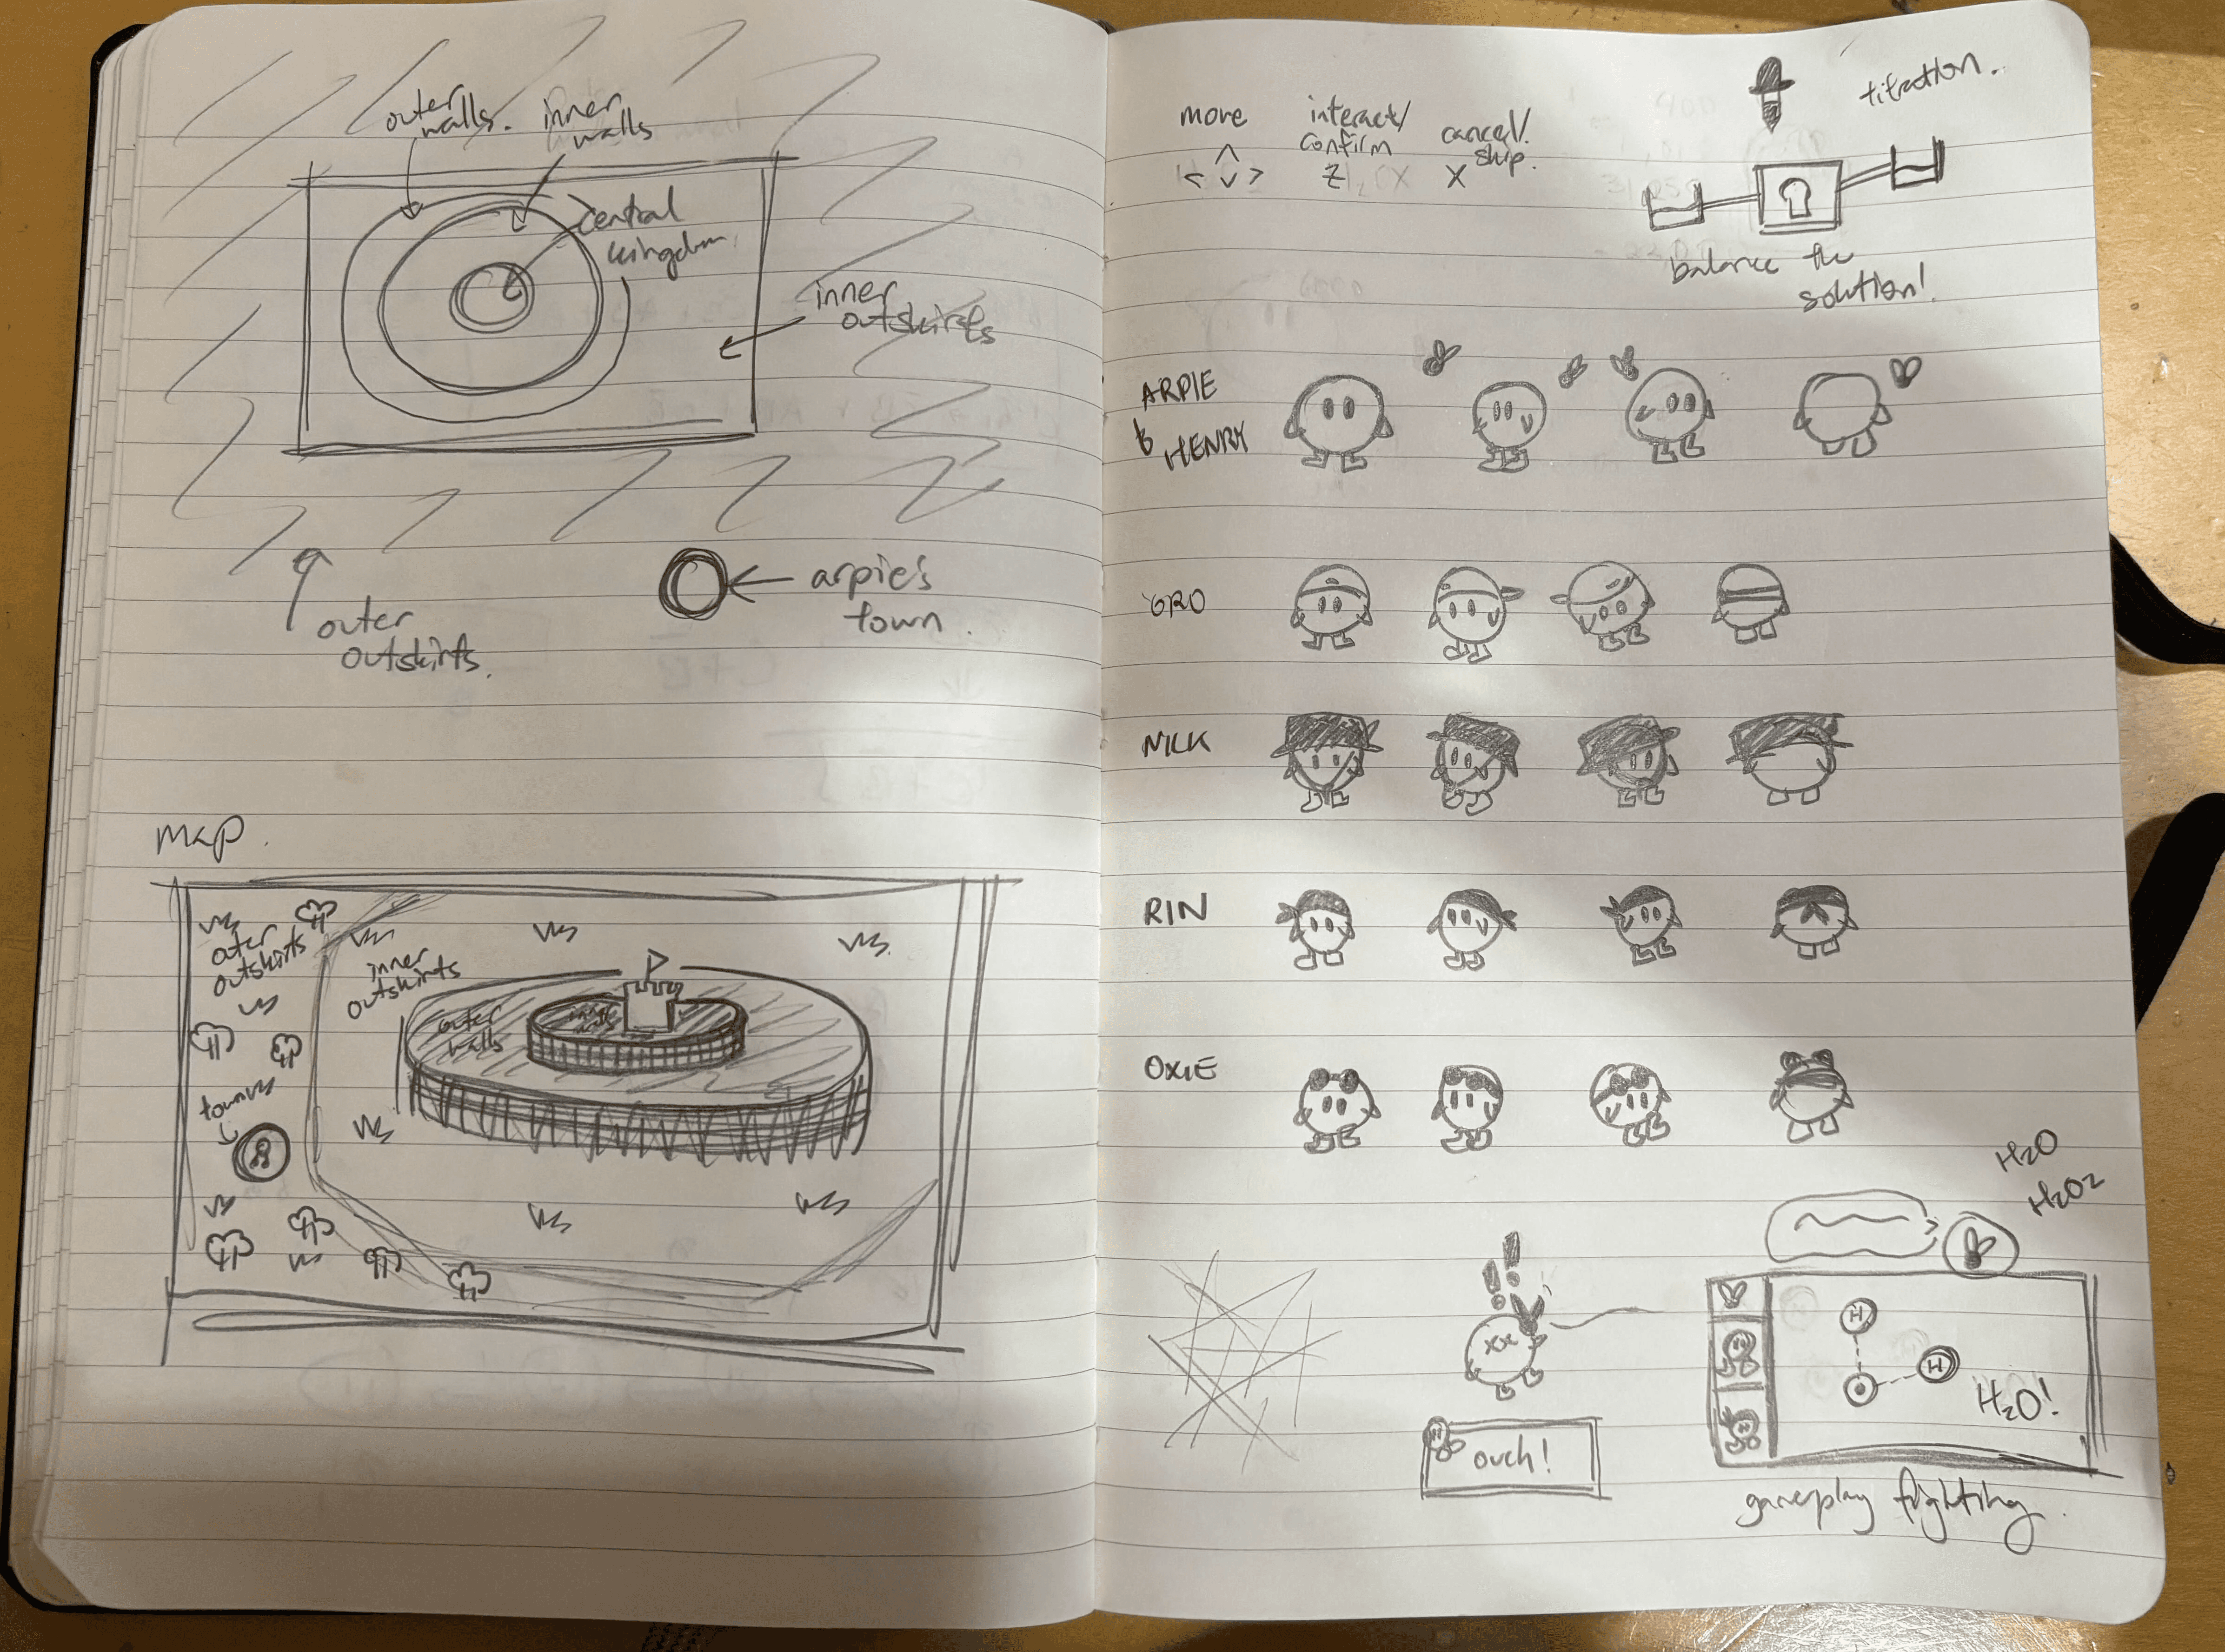 outer
walls.
inner
walls
central
kingdom.
inner
outskirts
outer
outskirts.
arpie's
town.
map.
outer
outskirts
inner
outskirts
outer
walls
inner
walls
town
move
interact/
confirm
Z
cancel/
skip.
X
titration.
balance the
solution!
ARPIE
&
HENRY
GRO
NILK
RIN
OXIE
H2O
H2O2
!!
xx
ouch!
H
H
O
H2O!
gameplay fighting.